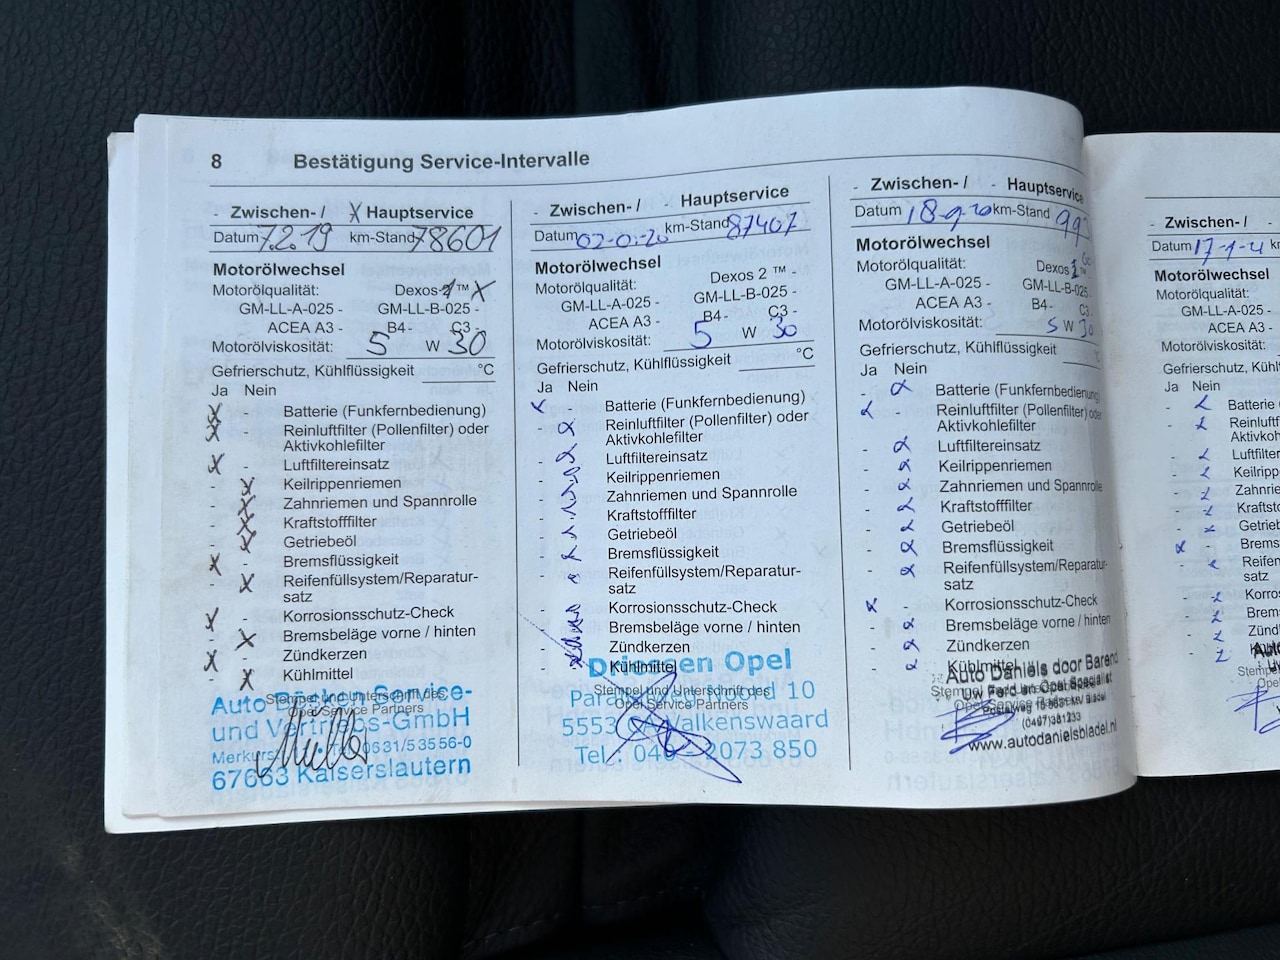 8 Bestätigung Service-Intervalle
- Zwischen- / X Hauptservice
Datum 7.2.19 km-Stand 78601
Motorölwechsel
Motorölqualität: Dexos 2 ™ X
GM-LL-A-025 - GM-LL-B-025 -
ACEA A3 - B4- C3 -
Motorölviskosität: 5 W 30
Gefrierschutz, Kühlflüssigkeit °C
Ja Nein
X - Batterie (Funkfernbedienung)
X - Reinluftfilter (Pollenfilter) oder
Aktivkohlefilter
X - Luftfiltereinsatz
- X Keilrippenriemen
- X Zahnriemen und Spannrolle
- X Kraftstofffilter
- X Getriebeöl
X - Bremsflüssigkeit
- X Reifenfüllsystem/Reparatur-
satz
X - Korrosionsschutz-Check
- X Bremsbeläge vorne / hinten
X - Zündkerzen
- X Kühlmittel
Stempel und Unterschrift des
Opel Service Partners
Auto Service-
und GmbH
Merkurst 0631/53556-0
67663 Kaiserslautern
- Zwischen- / - Hauptservice
Datum km-Stand 87407
Motorölwechsel
Motorölqualität: Dexos 2 ™ -
GM-LL-A-025 - GM-LL-B-025 -
ACEA A3 - B4- C3 -
Motorölviskosität: 5 W 30
Gefrierschutz, Kühlflüssigkeit °C
Ja Nein
Batterie (Funkfernbedienung)
Reinluftfilter (Pollenfilter) oder
Aktivkohlefilter
Luftfiltereinsatz
Keilrippenriemen
Zahnriemen und Spannrolle
Kraftstofffilter
Getriebeöl
Bremsflüssigkeit
Reifenfüllsystem/Reparatur-
satz
Korrosionsschutz-Check
Bremsbeläge vorne / hinten
Zündkerzen
Kühlmittel
Stempel und Unterschrift des
Opel Service Partners
Driessen Opel
Noord 10
Valkenswaard
Tel.: 040 - 2073 850
- Zwischen- / - Hauptservice
Datum 18-9-20 km-Stand
Motorölwechsel
Motorölqualität: Dexos
GM-LL-A-025 - GM-LL-B-025 -
ACEA A3 - B4-
Motorölviskosität: 5 W 30
Gefrierschutz, Kühlflüssigkeit
Ja Nein
Batterie (Funkfernbedienung)
Reinluftfilter (Pollenfilter) oder
Aktivkohlefilter
Luftfiltereinsatz
Keilrippenriemen
Zahnriemen und Spannrolle
Kraftstofffilter
Getriebeöl
Bremsflüssigkeit
Reifenfüllsystem/Reparatur-
satz
Korrosionsschutz-Check
Bremsbeläge vorne / hinten
Zündkerzen
Kühlmittel
Auto Daniëls door Barend
Uw Ford en Opel Specialist
(0497)381233
www.autodanielsbladel.nl
- Zwischen- / -
Datum
Motorölwechsel
Motorölqualität:
GM-LL-A-025
ACEA A3 -
Motorölviskosität:
Gefrierschutz, Kühlflüss
Ja Nein
Batterie
Reinluft
Aktivko
Luftfilte
Keilripp
Zahnrie
Kraftsto
Getrieb
Brems
Reifen
satz
Korros
Brems
Zünd
Auto
Stempel
Opel